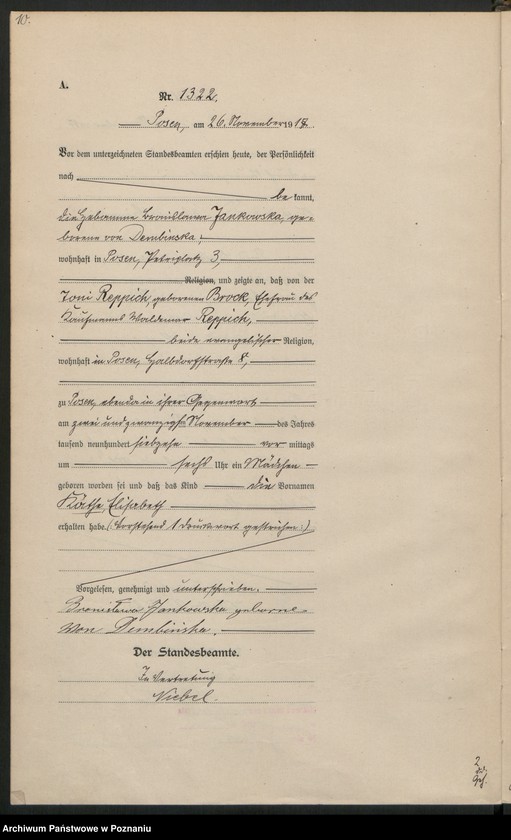 10.
A.
Nr. 1322.
Posen, am 26. November 1917.
Vor dem unterzeichneten Standesbeamten erschien heute, der Persönlichkeit
nach
be kannt,
die Hebamme Bronislawa Jankowska, ge-
borene von Dembinska,
wohnhaft in Posen, Petriplatz 3,
Religion, und zeigte an, daß von der
Toni Reppich, geborenen Brock, Ehefrau des
Kaufmanns Waldemar Reppich,
beide evangelischer Religion,
wohnhaft in Posen, Halbdorfstraße 8,
zu Posen, ebenda in ihrer Gegenwart
am zwei und zwanzigsten November des Jahres
tausend neunhundert siebzehn vor mittags
um sechs Uhr ein Mädchen
geboren worden sei und daß das Kind die Vornamen
Käthe Elisabeth
erhalten habe. (Vorstehend 1 Druckwort gestrichen)
Vorgelesen, genehmigt und unterschrieben.
Bronisława Jankowska geborene
von Dembińska.
Der Standesbeamte.
In Vertretung
Niebel.
2
Archiwum Państwowe w Poznaniu